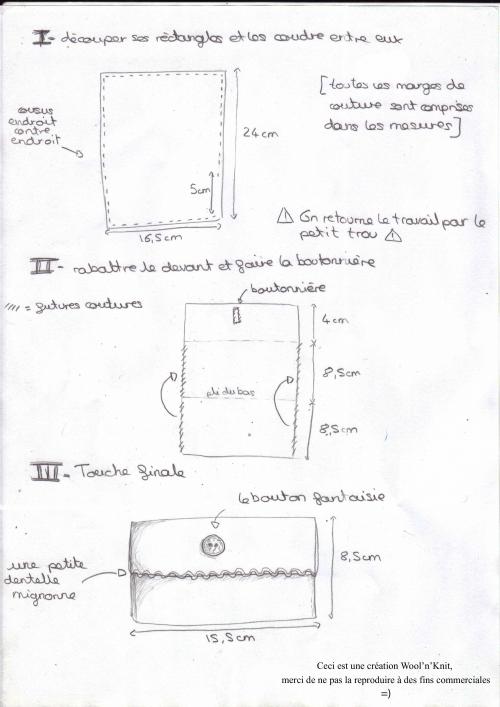 I- découper ses rectangles et les coudre entre eux
[toutes les marges de
couture sont comprises
dans les mesures]
cousus
endroit
contre
endroit
24cm
5cm
16,5cm
⚠ On retourne le travail par le
petit trou ⚠
II- rabattre le devant et faire la boutonnière
boutonnière
//// = futures coutures
4cm
8,5cm
pli du bas
8,5cm
III- Touche finale
le bouton fantaisie
une petite
dentelle
mignonne
8,5cm
15,5cm
Ceci est une création Wool'n'Knit,
merci de ne pas la reproduire à des fins commerciales
=)